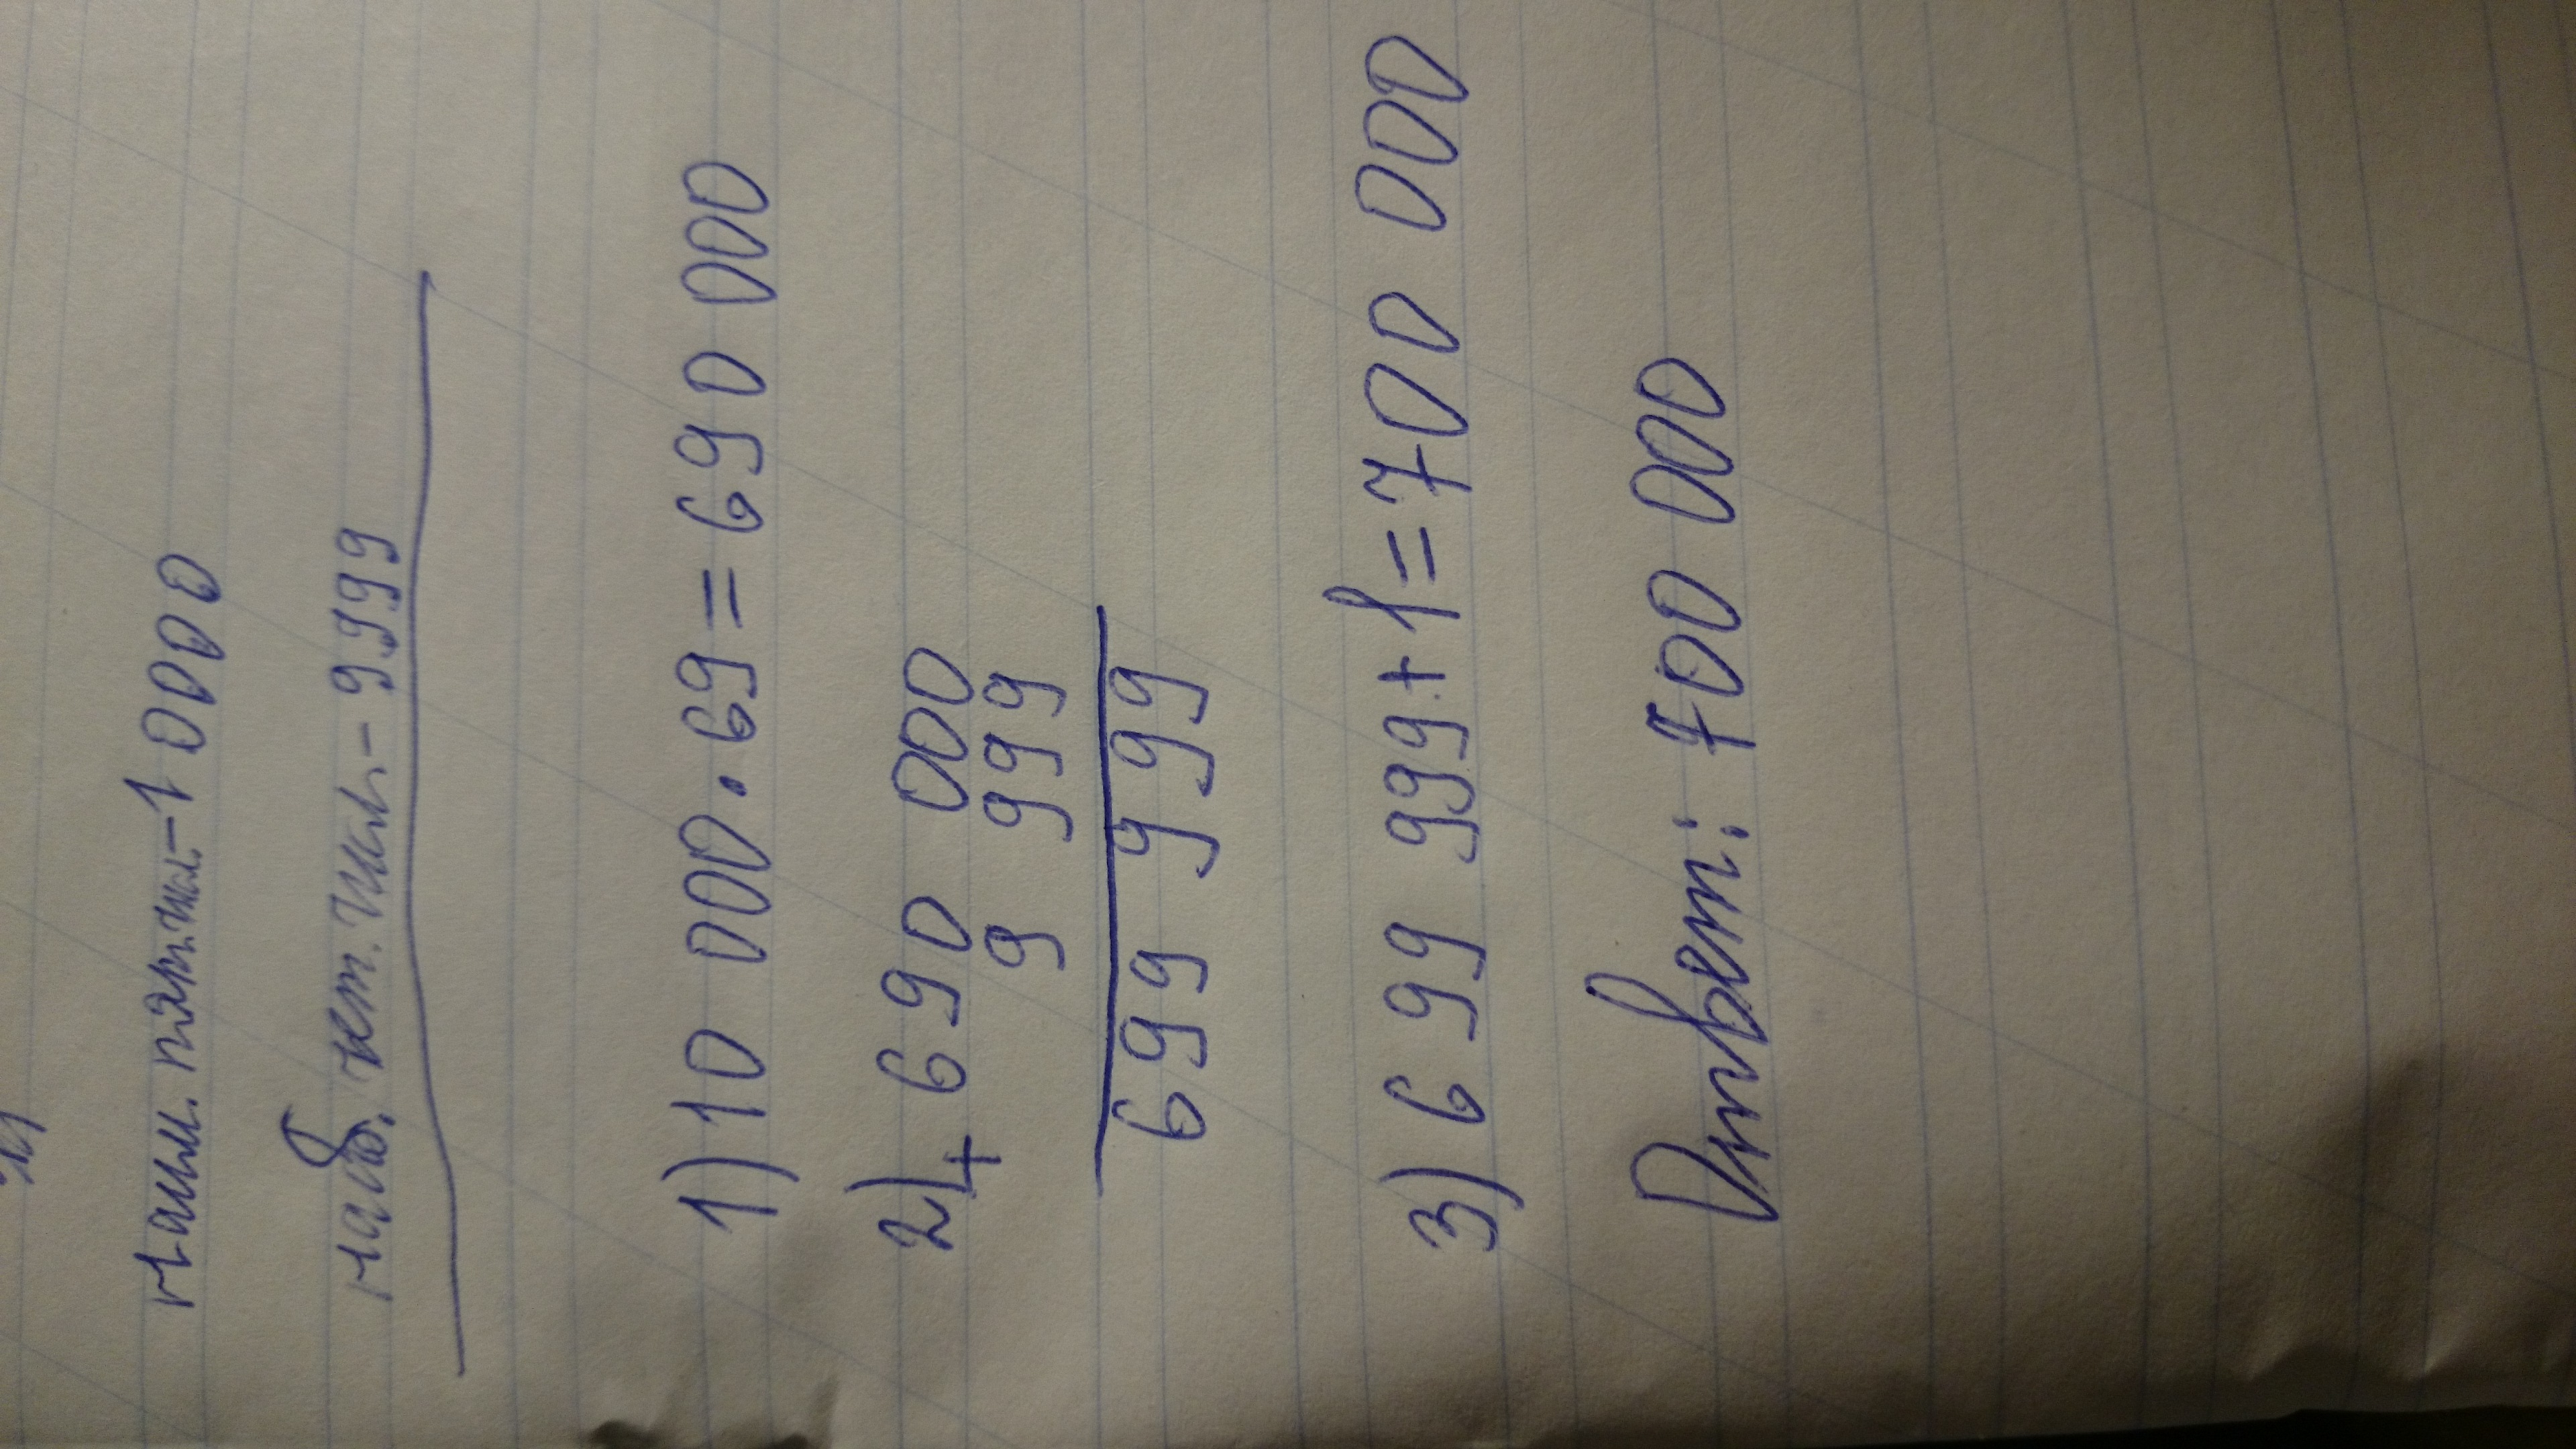 наим. пятизн. - 10000
наиб. чет. чис. - 9999
1) 10 000 · 69 = 690 000
2) + 690 000
9 999
699 999
3) 699 999 + 1 = 700 000
Ответ: 700 000